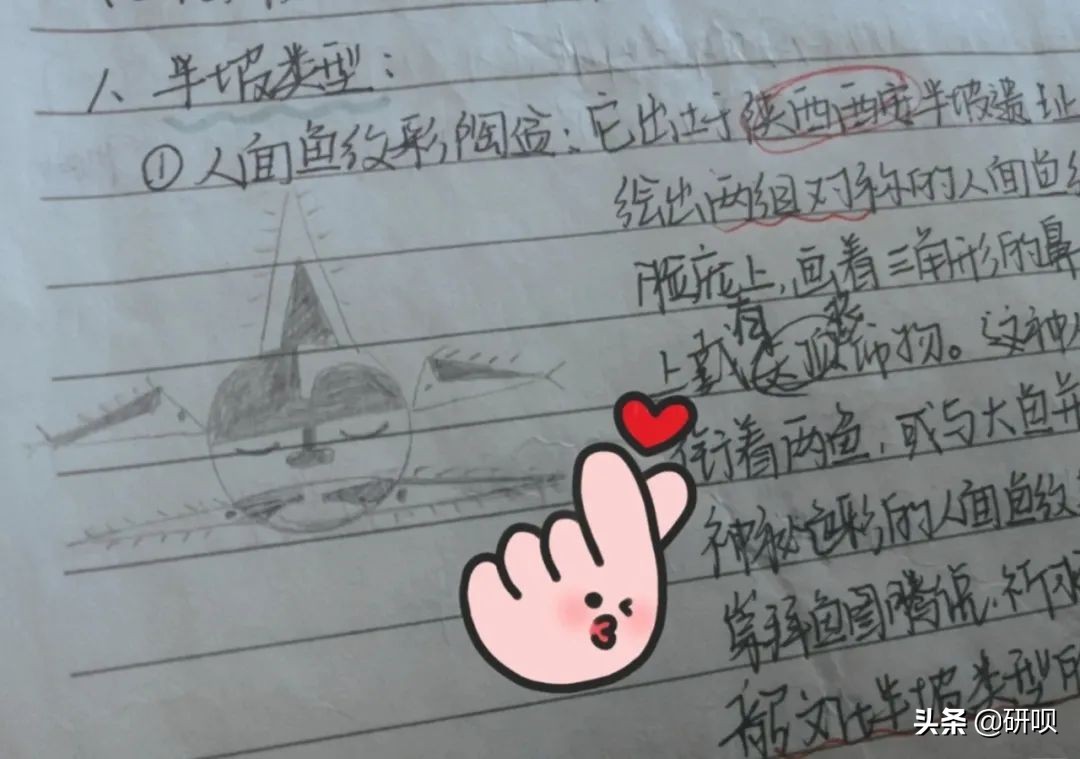 1、半坡类型：
①人面鱼纹彩陶盆：它出土于陕西西安半坡遗址
绘出两组对称的人面鱼纹
脸庞上，画着三角形的鼻
上戴有
饰物。这种人
衔着两鱼，或与大鱼并
神秘色彩的人面鱼纹
崇拜鱼图腾
祈求
半坡类型的
头条 @研呗